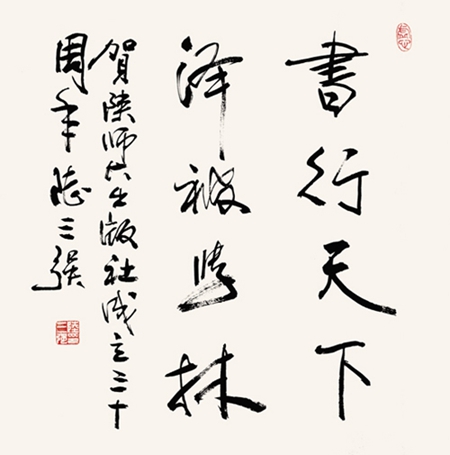 書行天下
澤被學林
賀陝師大出版社成立三十
周年陸三强